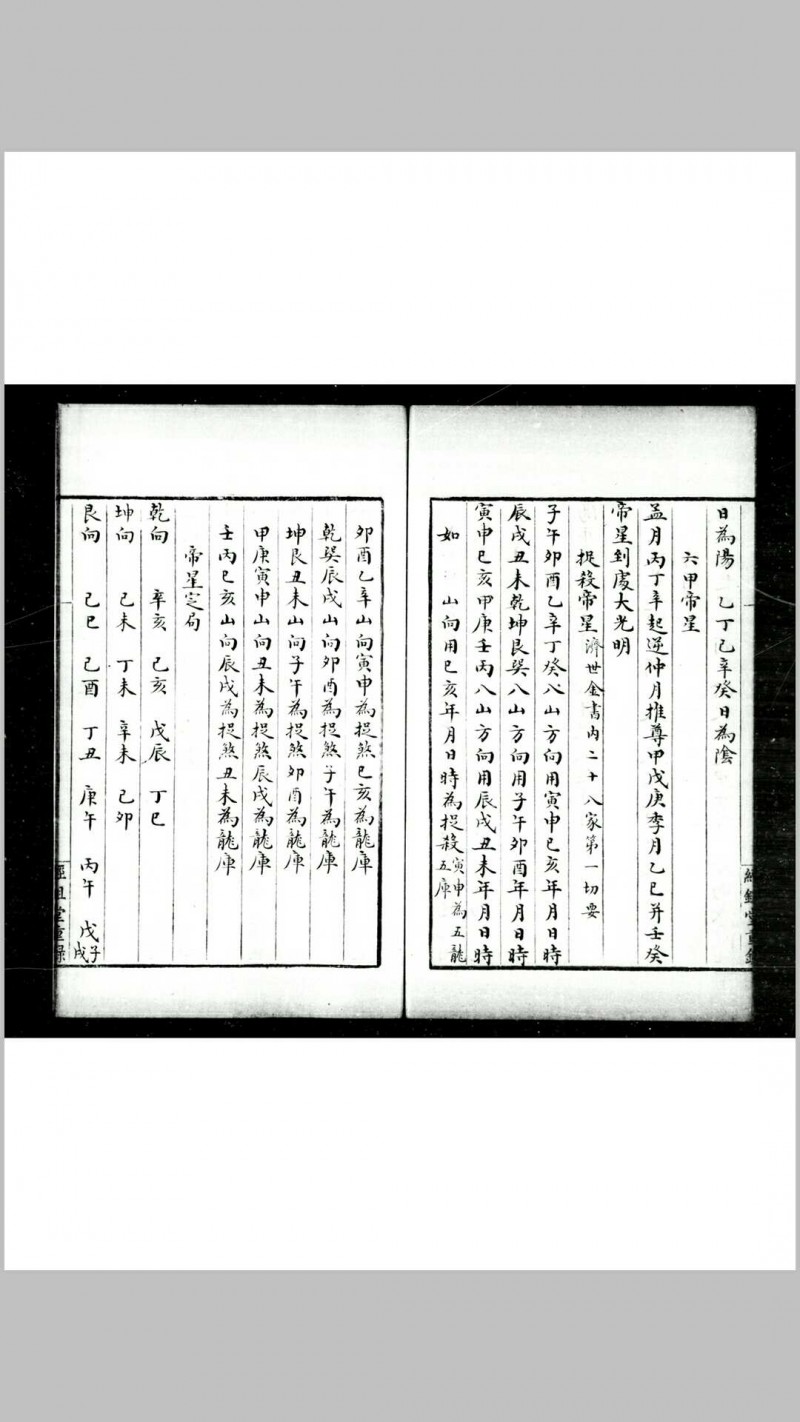 日為陽　乙丁己辛癸日為陰
六甲帝星
孟月丙丁辛起逆仲月推尊甲戊庚季月乙巳并壬癸
帝星到處大光明
捉殺帝星濟世金書內二十八家第一切要
子午卯酉乙辛丁癸八山方向用寅申巳亥年月日時
辰戌丑未乾坤艮巽八山方向用子午卯酉年月日時
寅申巳亥甲庚壬丙八山方向用辰戌丑未年月日時
如　山向用巳亥年月日時為捉殺寅申為五龍五庫
卯酉乙辛山向寅申為捉煞巳亥為龍庫
乾巽辰戌山向卯酉為捉煞子午為龍庫
坤艮丑未山向子午為捉煞卯酉為龍庫
甲庚寅申山向丑未為捉煞辰戌為龍庫
壬丙巳亥山向辰戌為捉煞丑未為龍庫
帝星定局
乾向　辛亥　己亥　戊辰　丁巳
坤向　己未　丁未　辛未　己卯
艮向　己巳　己酉　丁丑　庚午　丙午　戊子戌
經鉏堂重錄